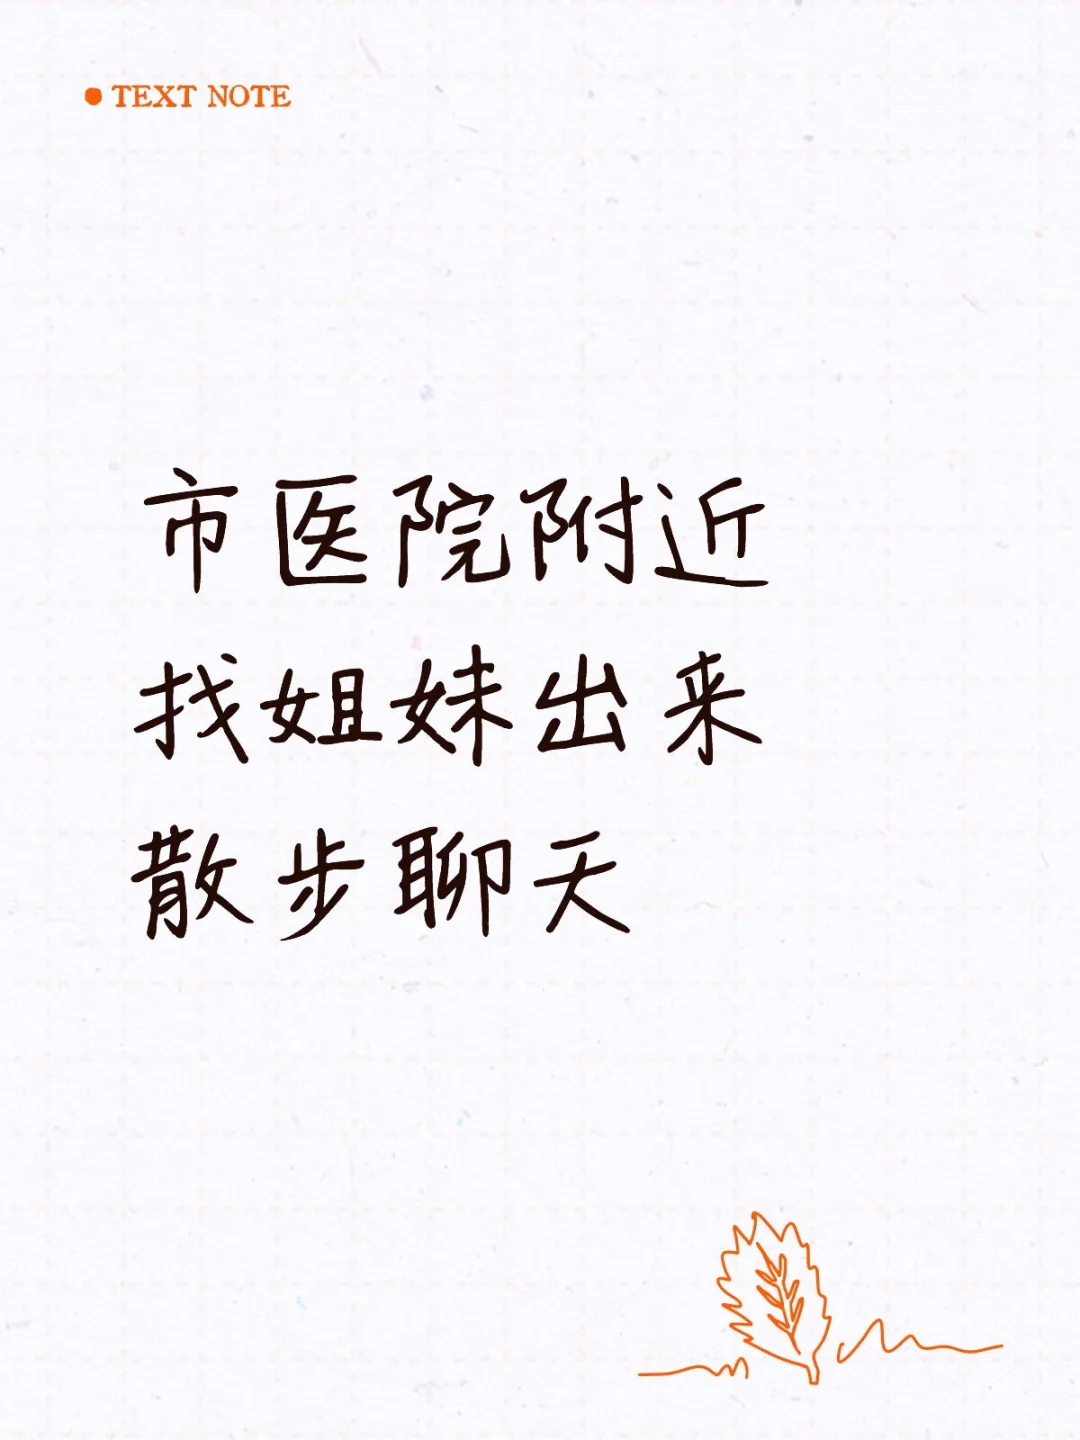 TEXT NOTE
市医院附近
找姐妹出来
散步聊天